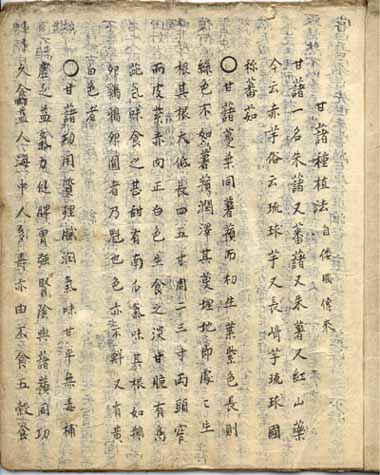 甘藷種植法 自倭國傳來
甘藷一名朱藷又蕃藷又朱薯又紅山藥
今云赤芋俗云琉球芋又長崎芋琉球國
称蕃茄
〇甘藷蔓葉同薯蕷而初生葉紫色長則
綠色不如薯蕷潤澤其蔓埋地即處〻生
根其根大低長四五寸周二三寸兩頭窄
而皮紫赤肉正白色生食之淡甘脆有
味食之甚甜有南瓜氣味其根如鵝
卵鷄鴨卵圓者乃魁也色亦不 又有黃
白色者
〇甘藷功用 理膩潤氣味甘平無毒補
虛乏益氣力健脾胃强腎陰與薯蕷同功
久食益人海中人多壽亦由不食五穀食